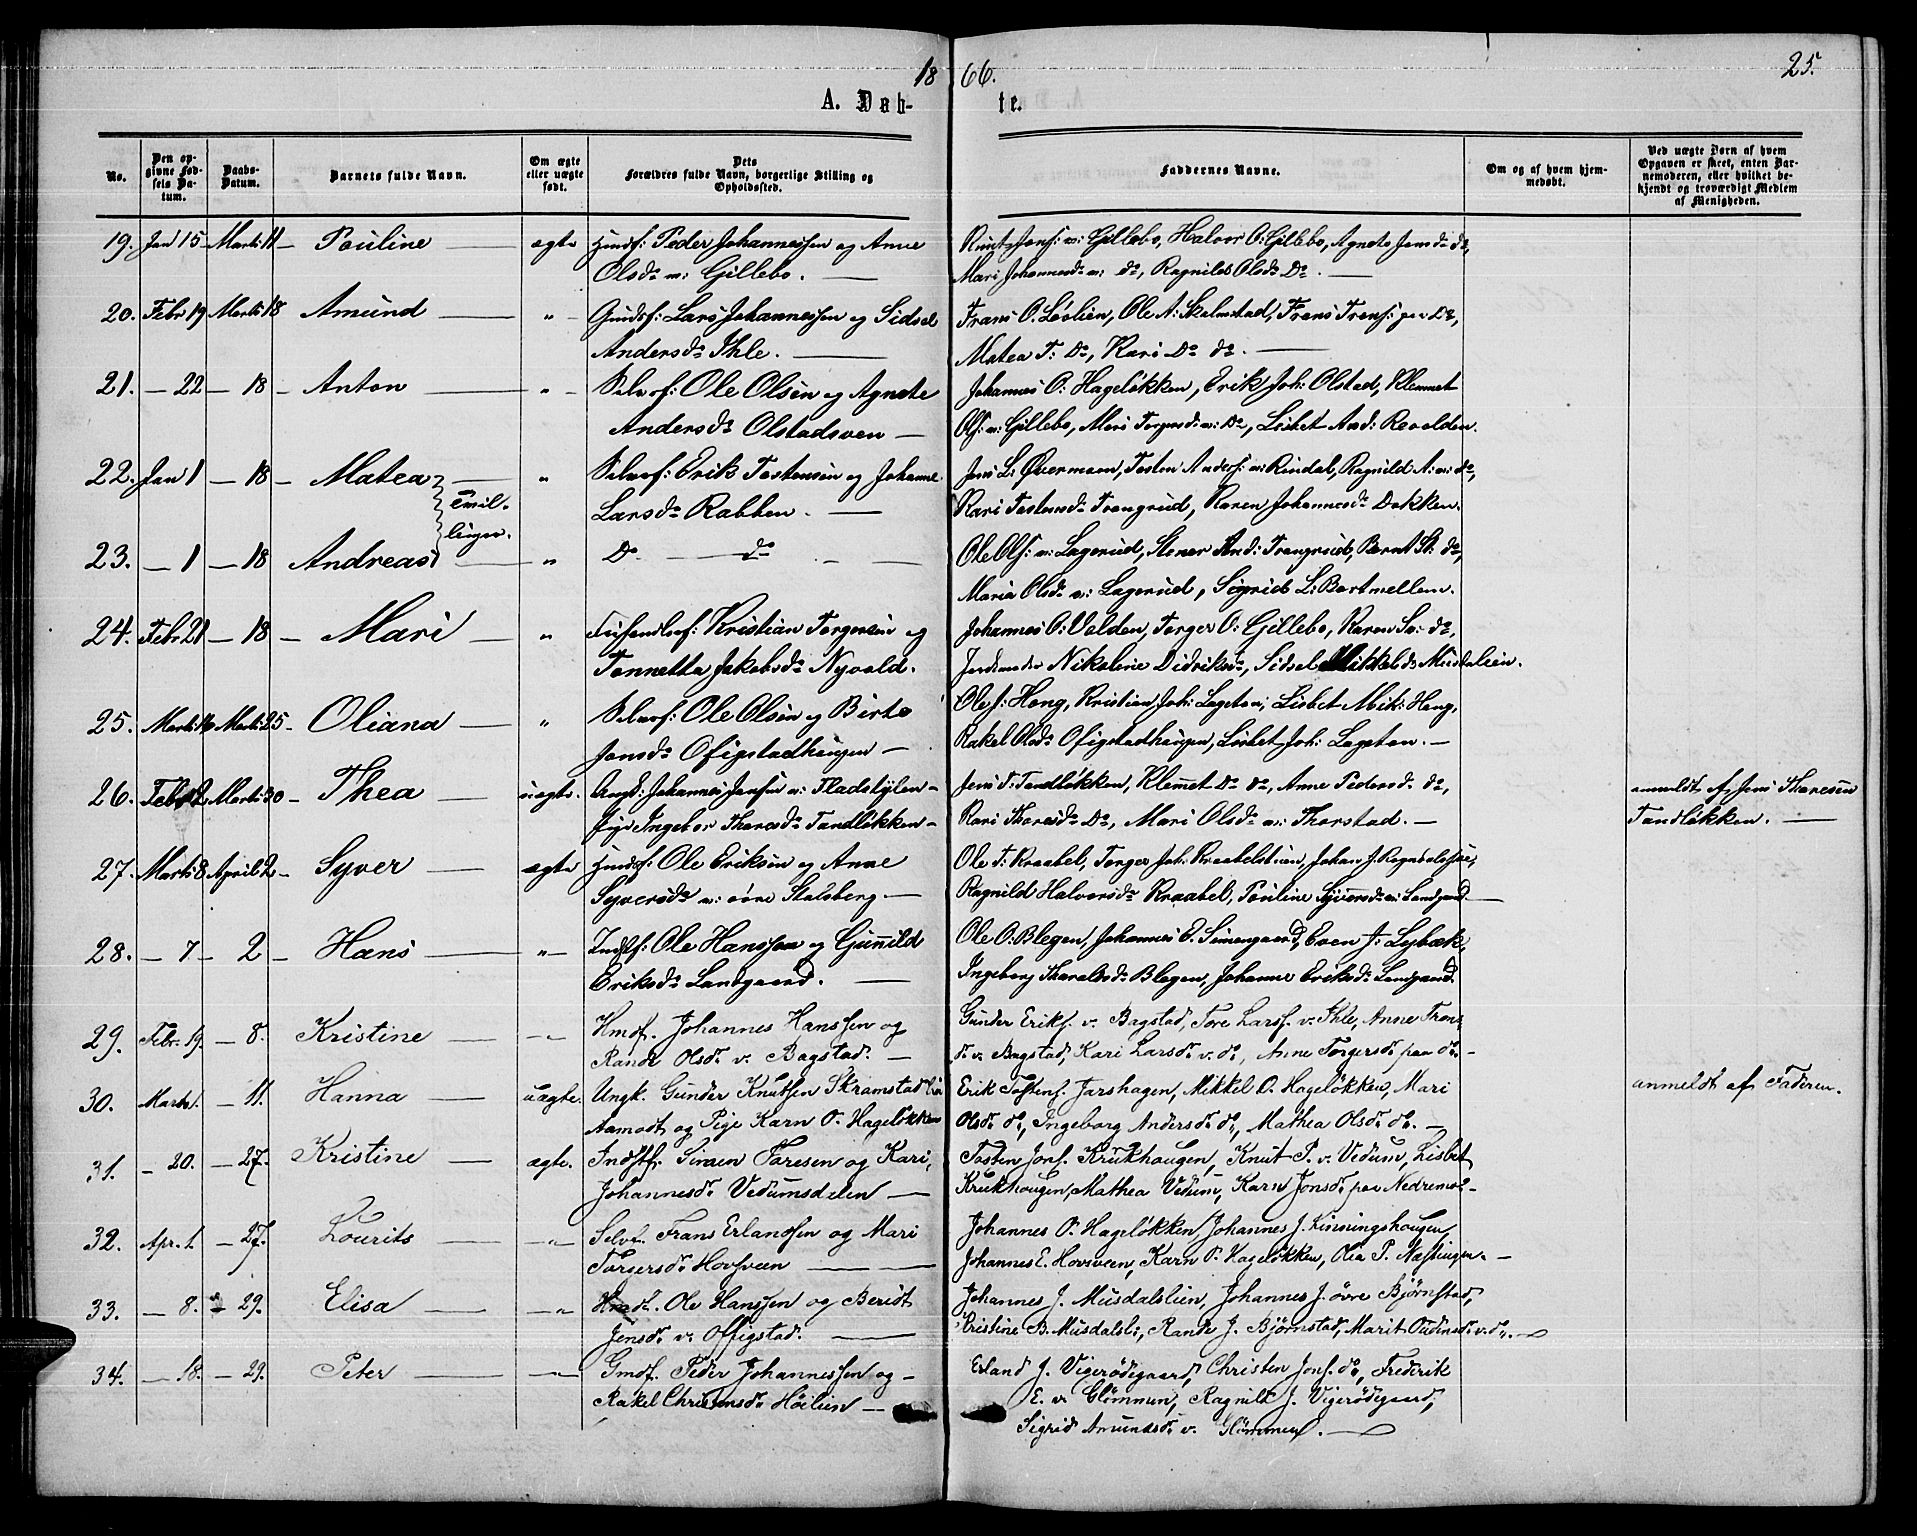 1866.
25.
A. Døbte.
No.
Den opgivne Fødsels Datum.
Daabs-Datum.
Barnets fulde Navn.
Om ægte eller uægte født.
Dets Forældres fulde Navn, borgerlige Stilling og Opholdssted.
Faddernes Navne.
Om og af hvem hjemmedøbt.
Ved uægte Børn af hvem Opgaven er skeet, enten Barnemoderen, eller hvilket bekjendt og troværdigt Medlem af Menigheden.
19. Jan 15 Marts 11 Pauline ægte Huusf: Peder Johannessen og Anne
Olsdr v: Gillebo.
Knut Jonsf: v: Gillebo, Halvor O: Gillebo, Agnete Jensdr do,
Mari Johannesdr v: do, Ragnild Olsdr Do.
20. Febr 19 Marts 18 Amund " Gmdsf: Lars Johannessen og Sidsel
Andersdr Ihle.
Frans O. Løvlien, Ole A: Skalmstad, Frans Fransf: paa Do,
Matea T: Do, Kari Do do.
21. — 22 — 18 Anton " Selvsf: Ole Olsen og Agnete
Andersdr Olstadsveen
Johannes O: Hageløkken, Erik Joh: Olstad, Klemmet
Olsf: v: Gillebo, Mari Torgersdr v: Do, Lisbet And: Revolden.
22. Jan 1 — 18 Matea " Selvsf: Erik Tostensen og Johanne
Larsdr Rabben.
Tvillinger.
Jens L: Øvermoen, Tosten Andersf: v: Rindal, Ragnild A: v: do,
Kari Tostensdr Trangrud, Karen Johannesdr Dokken.
23. — 1 — 18 Andreas " Do do
Ole Olsf: v: Lagerud, Stener And: Trangrud, Bernt St: do,
Maria Olsdr v: Lagerud, Sigrid L: Bartmellem.
24. Febr 21 — 18 Mari " Kristian Torgersen og
Tonnetta Jakobsdr Nyvold.
Johannes O: Volden, Torger O: Gillebo, Karen Sv: do,
Jordemoder Nikoline Didriksdr, Sidsel Mikkelsdr Musdalien.
25. Marts 16 Marts 25 Oliana " Selvsf: Ole Olsen og Birte
Jonsdr Ofigstadhaugen
Ole J: Haug, Kristian Joh: Lageton, Lisbet Mik: Haug,
Rakel Olsdr Ofigstadhaugen, Lisbet Joh: Lageton.
26. Febr 12 Marts 30 Thea uægte. Ungk: Johannes Jensen v: Fladstylen
Pige Ingebor Thoresdr Tandløkken
Jens T: Tandløkken, Klemet Do do, Anne Pedersdr do,
Kari Thoresdr Do, Mari Olsdr v: Thorstad.
anmeldt af Jens Thoresen
Tandløkken.
27. Marts 8. April 2 Syver ægte Huusf: Ole Eriksen og Anne
Syversdr v: øvre Stalsberg
Ole T: Kraabel, Torger Joh: Kraabelstuen, Johan J. Rognvolshuse,
Ragnild Halvorsdr Kraabel, Pauline Syversdr v: Landgaard
28. — 7 — 2 Hans " Indstf: Ole Hanssen og Gunnild
Eriksdr Landgaard.
Ole O: Blegen, Johannes E. Simengaard, Even J: Lybæk,
Ingeborg Tharaldsdr Blegen, Johanne Eriksdr Landgaard.
29. Febr. 19. — 8. Kristine " Hmdf. Johannes Hanssen og
Rande Olsdr v. Bagstad.
Gunder Eriks. v. Bagstad, Tore Larsf. v. Ihle, Anne Frans-
dr v. Bagstad, Kari Larsdr v. do, Anne Torgersdr paa do.
30. Marts 1. — 11. Hanna uægte. Ungk. Gunder Knutsen Skramstad
Aamodt og Pige Karn O. Hageløkken
Erik Tostenf. Jarshagen, Mikkel O. Hageløkken, Mari
Olsdr do, Ingeborg Andersdr do, Mathea Olsdr do.
anmeldt af Faderen.
31. — 20. — 27. Kristine ægte. Indstf. Simen Toresen og Kari
Johannesdr Vedumsdelen
Tosten Jonf. Krukhaugen, Knut P. v. Vedum, Lisbet
Krukhaugen, Mathea Vedum, Karn Jonsdr paa Nedremo.
32. Apr. 1. — 27. Lourits " Selvf. Frans Erlandsen og Mari
Torgersdr Hovsveen
Johannes O. Hageløkken, Johannes J. Kinningshaugen,
Johannes E. Hovsveen, Karn O. Hageløkken, Olea P. Næssingen.
33. — 8. — 29. Elisa " Hmdf. Ole Hanssen og Beridt
Jensdr v. Offigstad.
Johannes J. Musdalslien, Johannes J. øvre Bjørnstad,
Kristine B. Musdalsli, Rande J. Bjørnstad, Marit Oudensdr v. do.
34. — 18. — 29. Peter " Gmdf. Peder Johannessen og
Rakel Christensdr Høilien
Erland J. Vigerødegaard, Christen Jonf. do, Frederik
E. v. Glömmen, Ragnild J. Vigerødegaard,
Sigrid Amundsdr v. Glömmen.